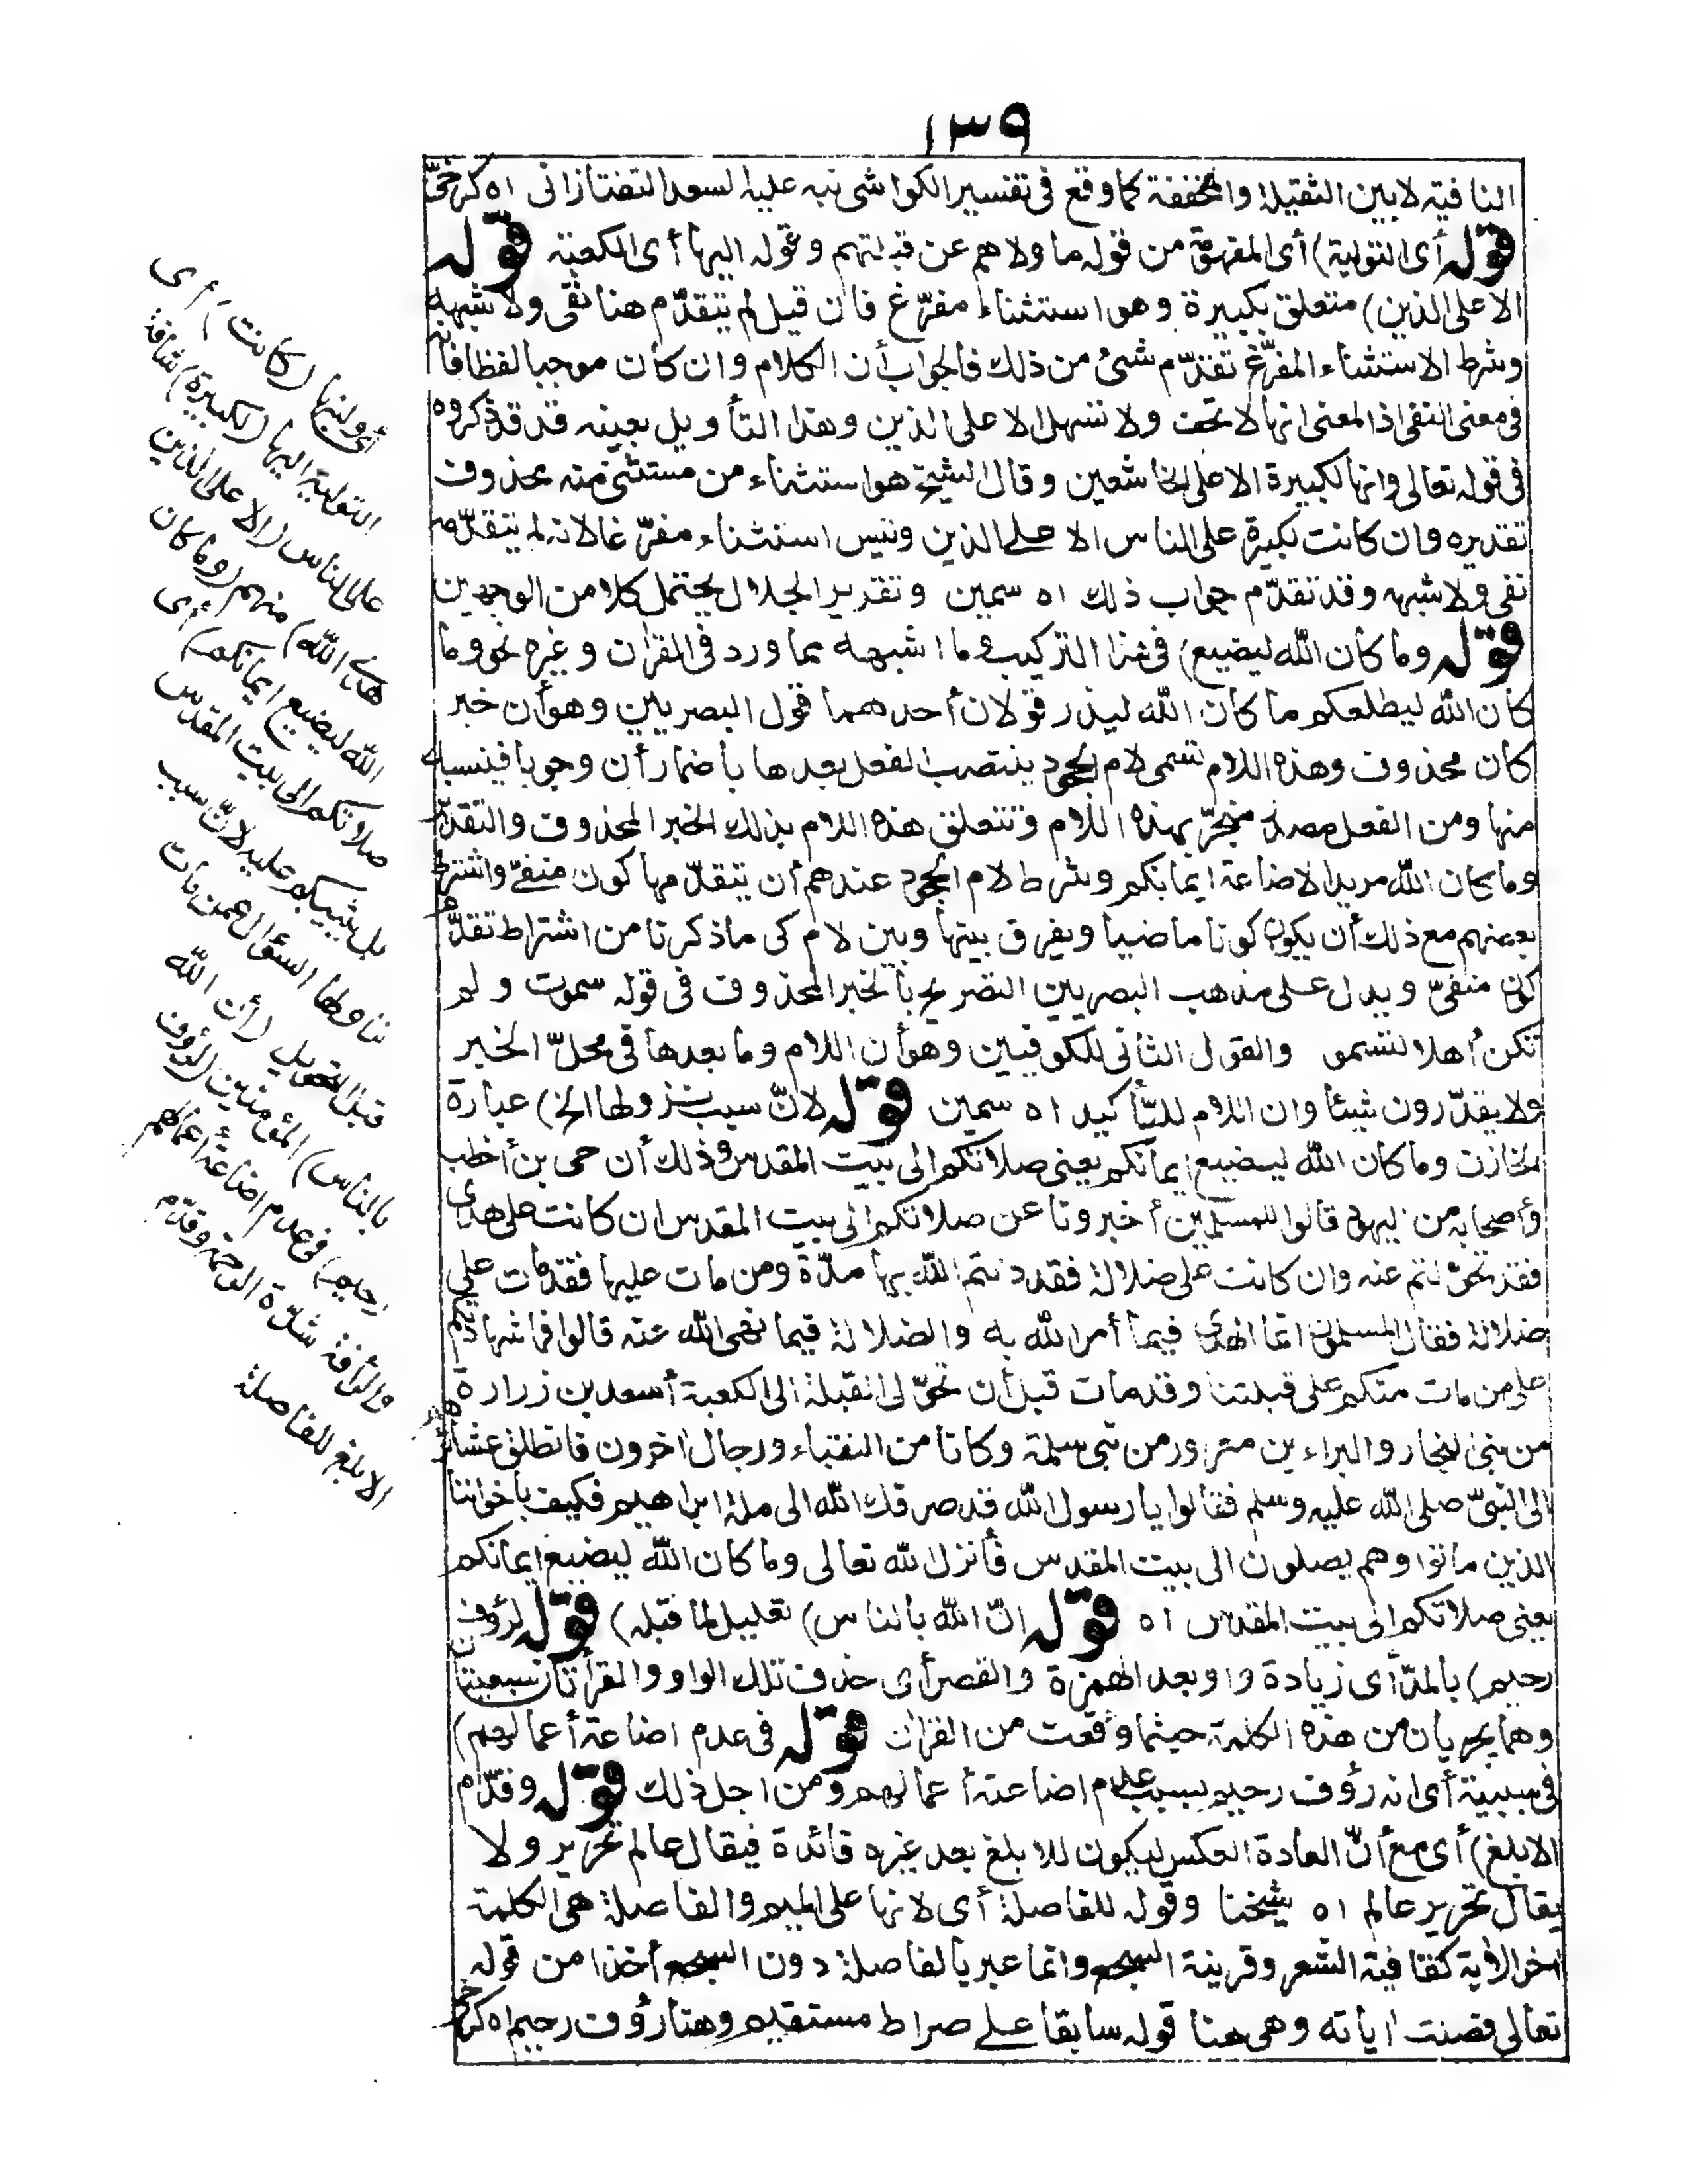 ١٣٩
النافية لا بين الثقيلة والمخففة كما وقع فى تفسير الكواشى نبه عليه السعد التفتازانى اه كرخىّ
قوله أى التولية) أى المفهومة من قوله ما ولاهم عن قبلتهم وقوله اليها أى الكعبة قوله
الا على الذين) متعلق بكبيرة وهو استثناء مفرّغ فان قيل لم يتقدّم هنا نفى ولا شبهه
وشرط الاستثناء المفرّغ تقدّم شئ من ذلك فالجواب أن الكلام وان كان موجبا لفظا فانه
فى معنى النفى اذ المعنى انها لا تخف ولا تسهل الا على الذين وهذا التأويل بعينه قد ذكروه
فى قوله تعالى وانها لكبيرة الا على الخاشعين وقال الشيخ هو استثناء من مستثنى منه محذوف
تقديره وان كانت لكبيرة على الناس الا على الذين وليس استثناء مفرّغا لانه لم يتقدّمه
نفى ولا شبهه وقد تقدّم جواب ذلك اه سمين وتقدير الجلال يحتمل كلا من الوجهين
قوله وما كان الله ليضيع) فى هذا التركيب وما اشبهه مما ورد فى القرآن وغيره نحو وما
كان الله ليطلعكم ما كان الله ليذر قولان أحدهما قول البصريين وهو أن خبر
كان محذوف وهذه اللام تسمى لام الجحود ينتصب الفعل بعدها باضمار أن وجوبا فينسبك
منها ومن الفعل مصدر منجرّ بهذه اللام وتتعلق هذه اللام بذلك الخبر المحذوف والتقدير
وما كان الله مريدا لاضاعة ايمانكم وشرط لام الجحود عندهم أن يتقدّمها كون منفىّ واشترط
بعضهم مع ذلك أن يكون كونا ماضيا ويفرق بينها وبين لام كى ما ذكرنا من اشتراط تقدّم
كون منفىّ ويدل على مذهب البصريين التصريح بالخبر المحذوف فى قوله سموت ولم
تكن أهلا لتسمو والقول الثانى للكوفيين وهو أن اللام وما بعدها فى محلّ الخبر
ولا يقدّرون شيئا وان اللام للتأكيد اه سمين قوله لانّ سبب نزولها الخ) عبارة
الخازن وما كان الله ليضيع ايمانكم يعنى صلاتكم الى بيت المقدس وذلك أن حى بن أخطب
وأصحابه من اليهود قالوا للمسلمين أخبرونا عن صلاتكم الى بيت المقدس ان كانت على هدى
فقد تحوّلتم عنه وان كانت على ضلالة فقد دنتم الله بها مدّة ومن مات عليها فقد مات على
ضلالة فقال المسلمون انما الهدى فيما أمر الله به والضلالة فيما نهى الله عنه قالوا فما شهادتكم
على من مات منكم على قبلتنا وقد مات قبل أن تحوّل القبلة الى الكعبة أسعد بن زرارة
من بنى النجار والبراء بن معرور من بنى سلمة وكانا من النقباء ورجال آخرون فانطلق عشائرهم
الى النبىّ صلى الله عليه وسلم فقالوا يا رسول الله قد صرفك الله الى ملة ابراهيم فكيف باخواننا
الذين ماتوا وهم يصلون الى بيت المقدس فأنزل الله تعالى وما كان الله ليضيع ايمانكم
يعنى صلاتكم الى بيت المقدس اه قوله انّ الله بالناس) تعليل لما قبله) قوله لرؤف
رحيم) بالمدّ أى زيادة واو بعد الهمزة والقصر أى حذف تلك الواو والقرأتان سبعيتان
وهما يجريان من هذه الكلمة حيثما وقعت من القرآن قوله فى عدم اضاعة أعمالهم)
فى سببية أى انه رؤف رحيم بسبب عدم اضاعة أعمالهم ومن اجل ذلك قوله وقدّم
الابلغ) أى مع أنّ العادة العكس ليكون للابلغ بعد غيره فائدة فيقال عالم نحرير ولا
يقال نحرير عالم اه شيخنا وقوله للفاصلة أى لانها على الميم والفاصلة هى الكلمة
آخر الآية كقافية الشعر وقرينة السجع وانما عبر بالفاصلة دون السجع أخذا من قوله
تعالى فصلت آياته وهى هنا قوله سابقا على صراط مستقيم وهنا رؤف رحيم اه كرخى
(كانت) أى
أى وانها (لكبيرة) شاقة
التولية اليها (الا على الذين
على الناس
هدى الله) منهم (وما كان
الله ليضيع ايمانكم) أى
صلاتكم الى بيت المقدس
بل يثيبكم عليه لانّ سبب
نزولها السؤال عمن مات
قبل التحويل (أن الله
بالناس) المؤمنين (لرؤف
رحيم) فى عدم اضاعة أعمالهم
والرأفة شدّة الرحمة وقدّم
الابلغ للفاصلة